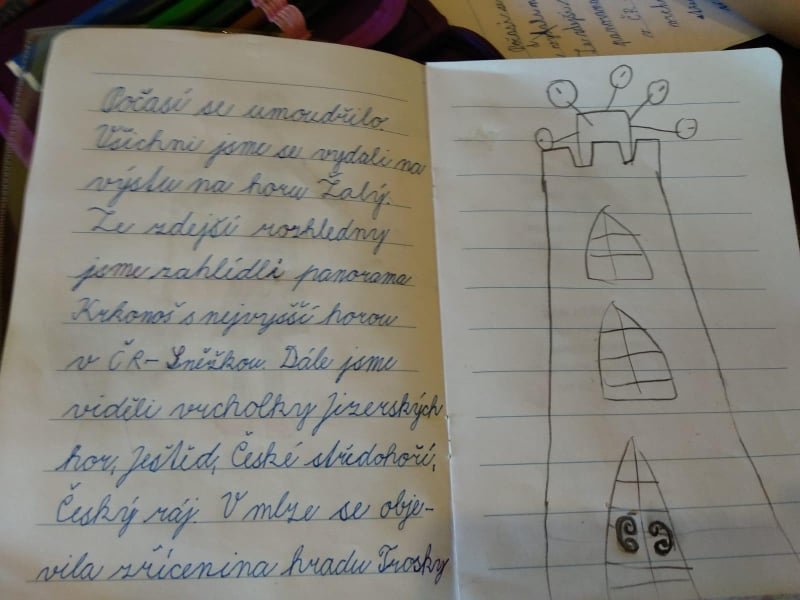 Počasí se umoudřilo.
Všichni jsme se vydali na
výstu na horu Žalý.
Ze zdejší rozhledny
jsme zahlídli panorama
Krkonoš s nejvyšší horou
v ČR - Sněžkou. Dále jsme
viděli vrcholky Jizerských
hor, Ještěd, České středohoří,
Český ráj. V mlze se obje-
vila zřícenina hradu Trosky